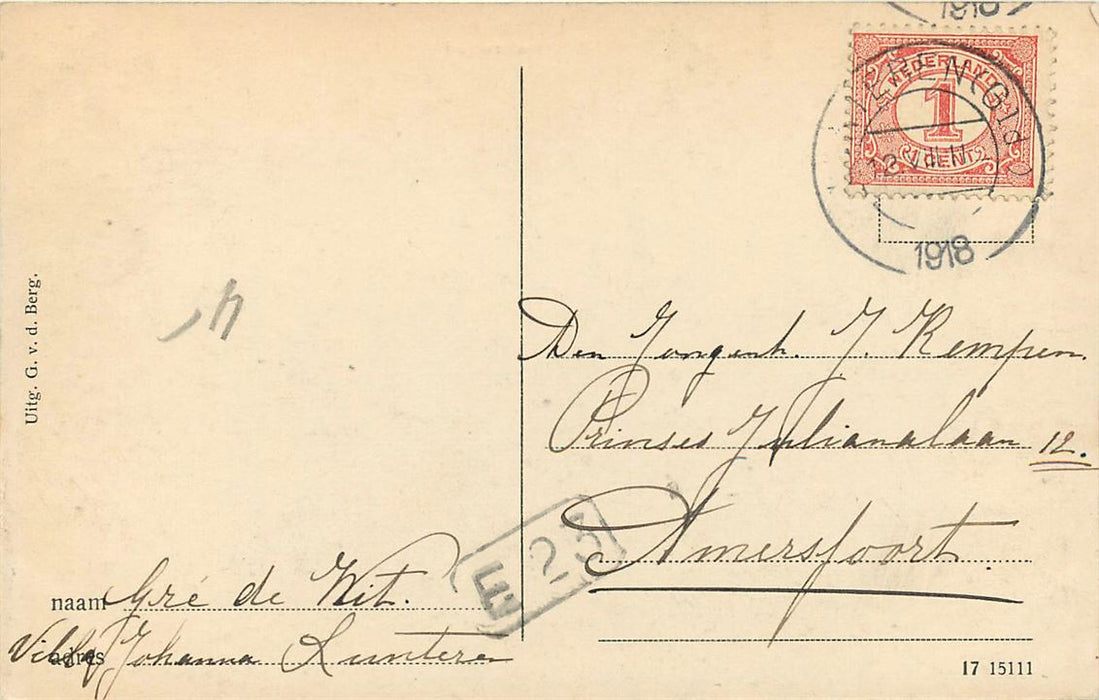 1918
NEDERLAND
1
1 CENT
1918
Uitg. G. v. d. Berg.
Den Jongenh. J. Kempen.
Prinses Julianalaan 12.
Amersfoort.
E 23
naam Gré de Wit.
adres Villa Johanna Lunteren
17 15111